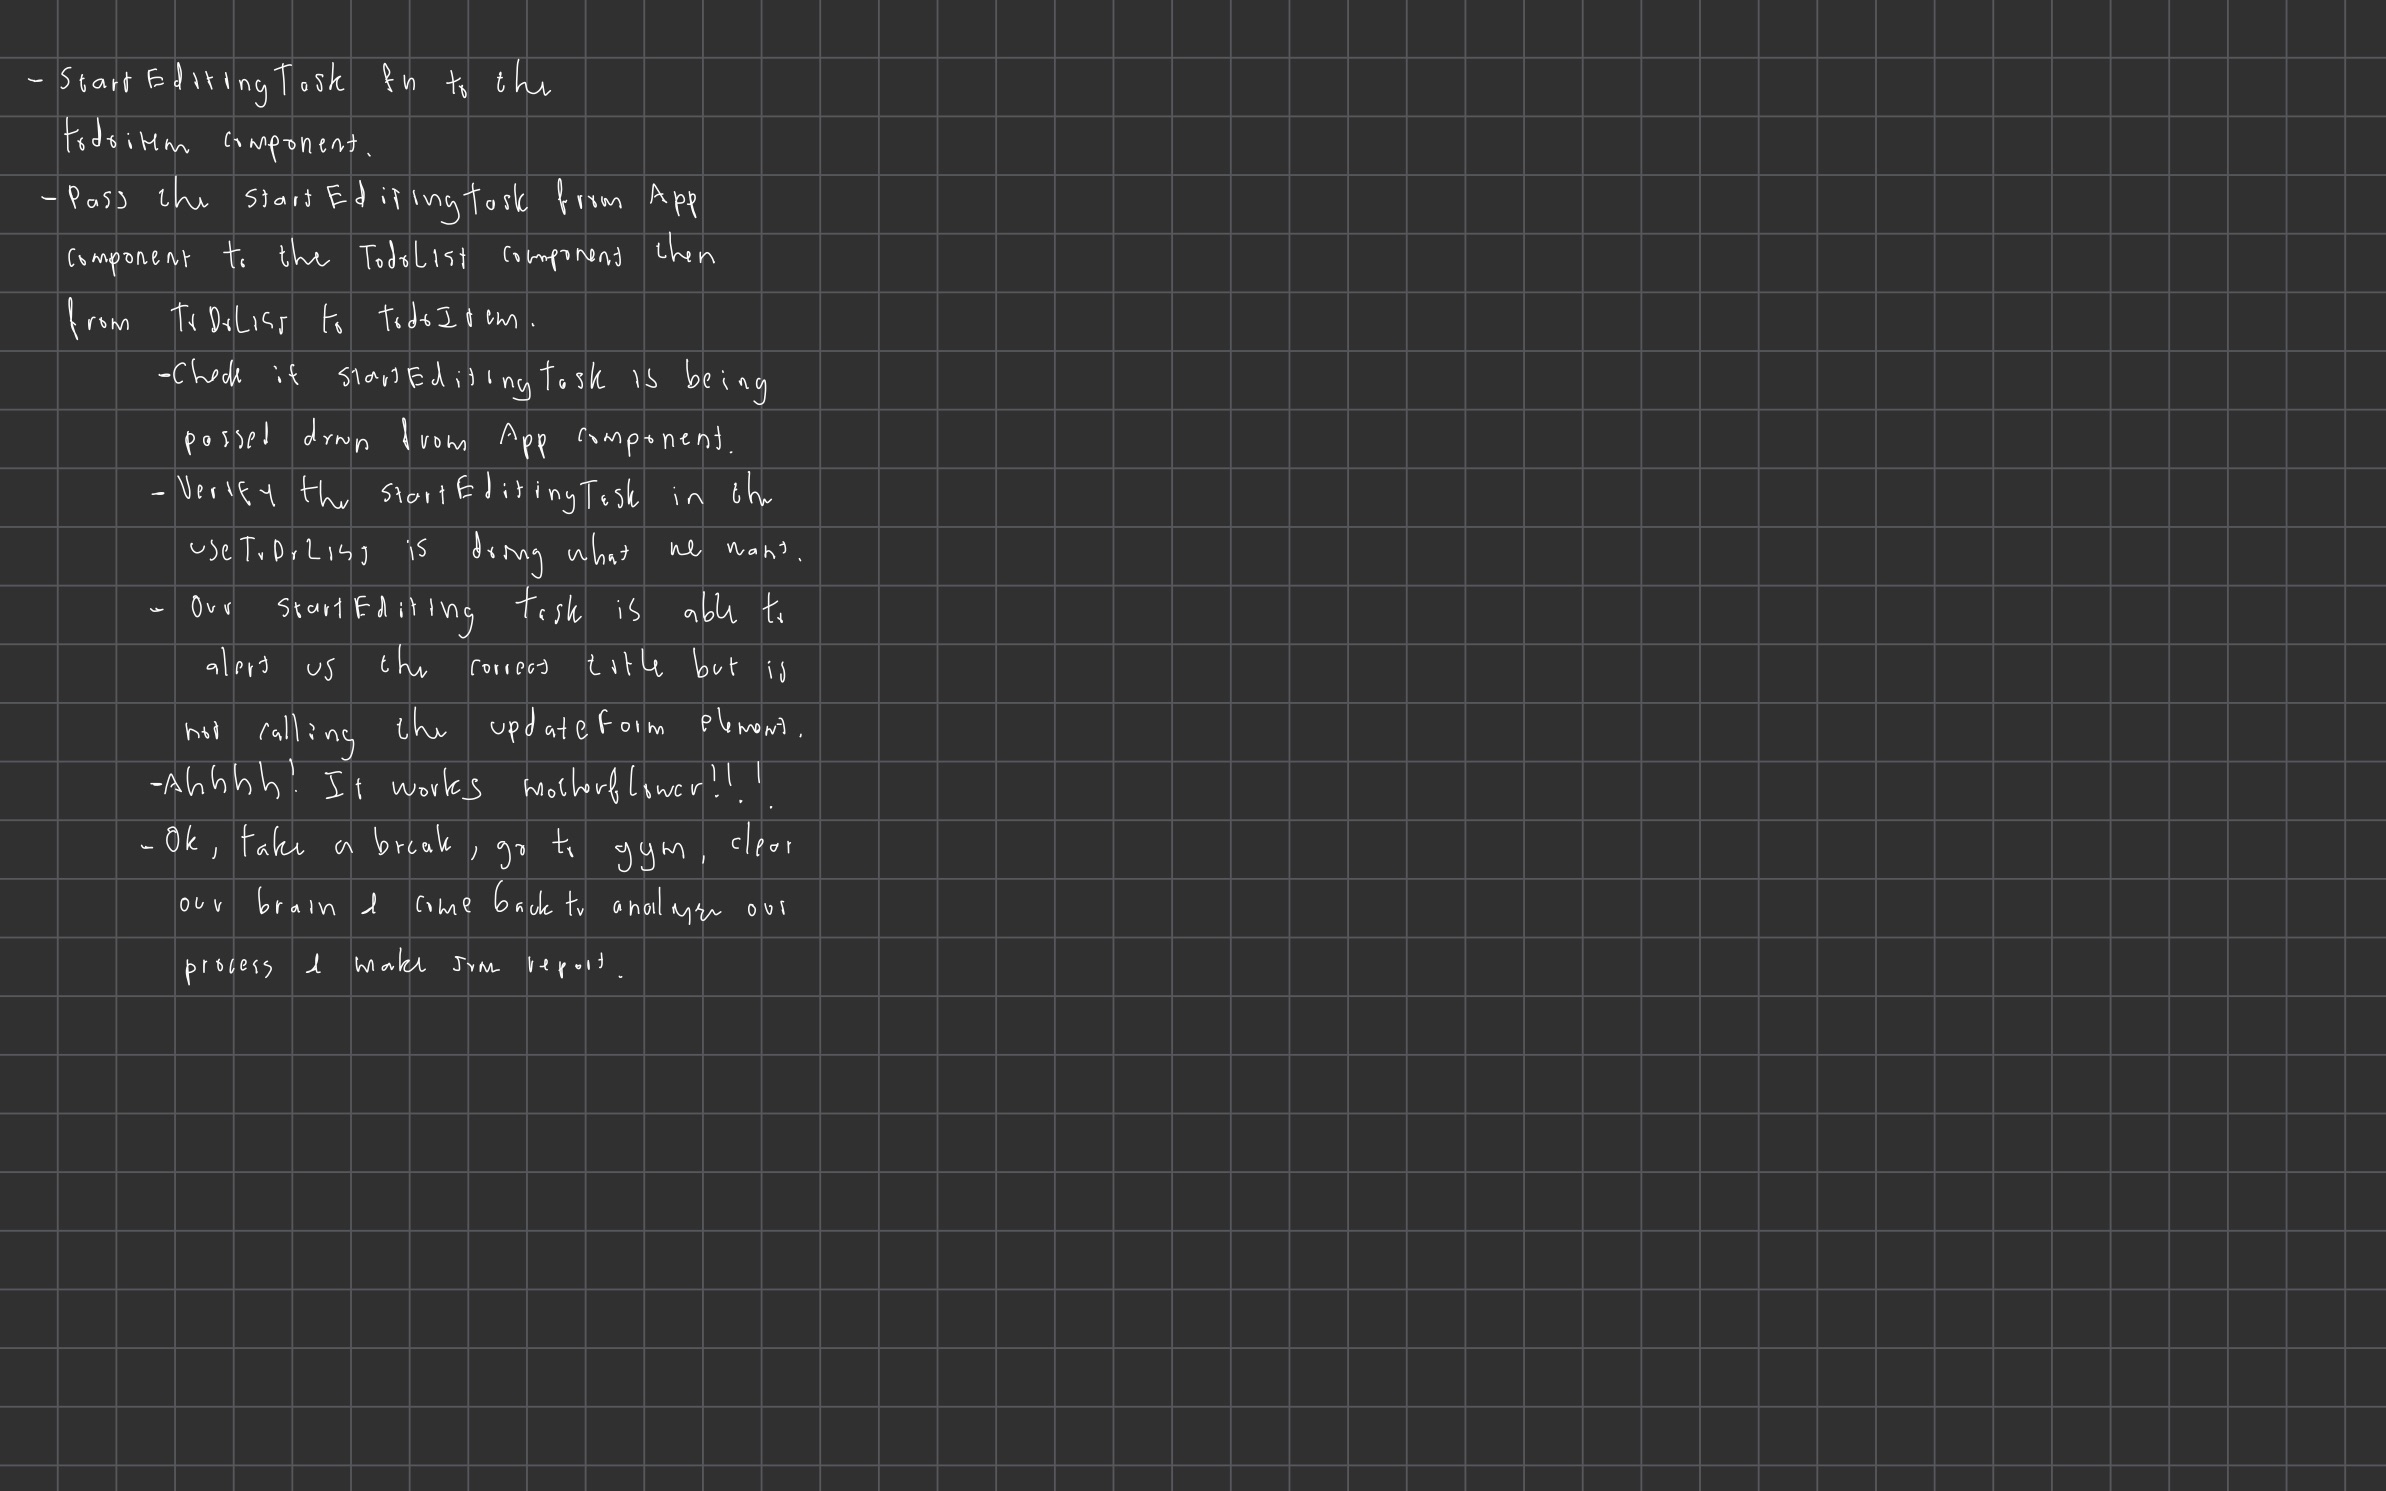 - StartEditingTask fn to the
todoitem component.
- Pass the startEditingTask from App
component to the TodoList component then
from ToDoList to todoItem.
- Check if startEditingTask is being
passed down from App component.
- Verify the startEditingTask in the
useToDoList is doing what we want.
- Our startEditing task is able to
alert us the correct title but is
not calling the updateForm element.
- Ahhhh! It works motherflower!!!!
- Ok, take a break, go to gym, clear
our brain & come back to analyze our
process & make some report.